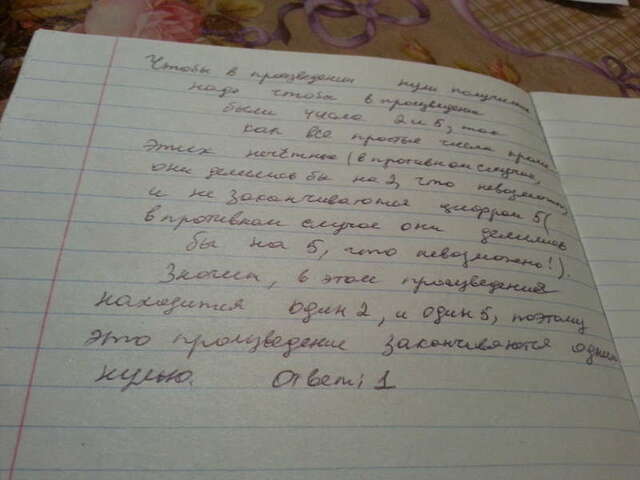 Чтобы в произведении нули получились
надо чтобы в произведение
были числа 2 и 5, так
как все простые числа кроме
этих нечётные (в противном случае,
они делились бы на 2, что невозможно,
и не заканчиваются цифрой 5(
в противном случае они делились
бы на 5, что невозможно!).
Значит, в этом произведение
находится один 2, и один 5, поэтому
это произведение заканчиваются одним
нулью. Ответ: 1